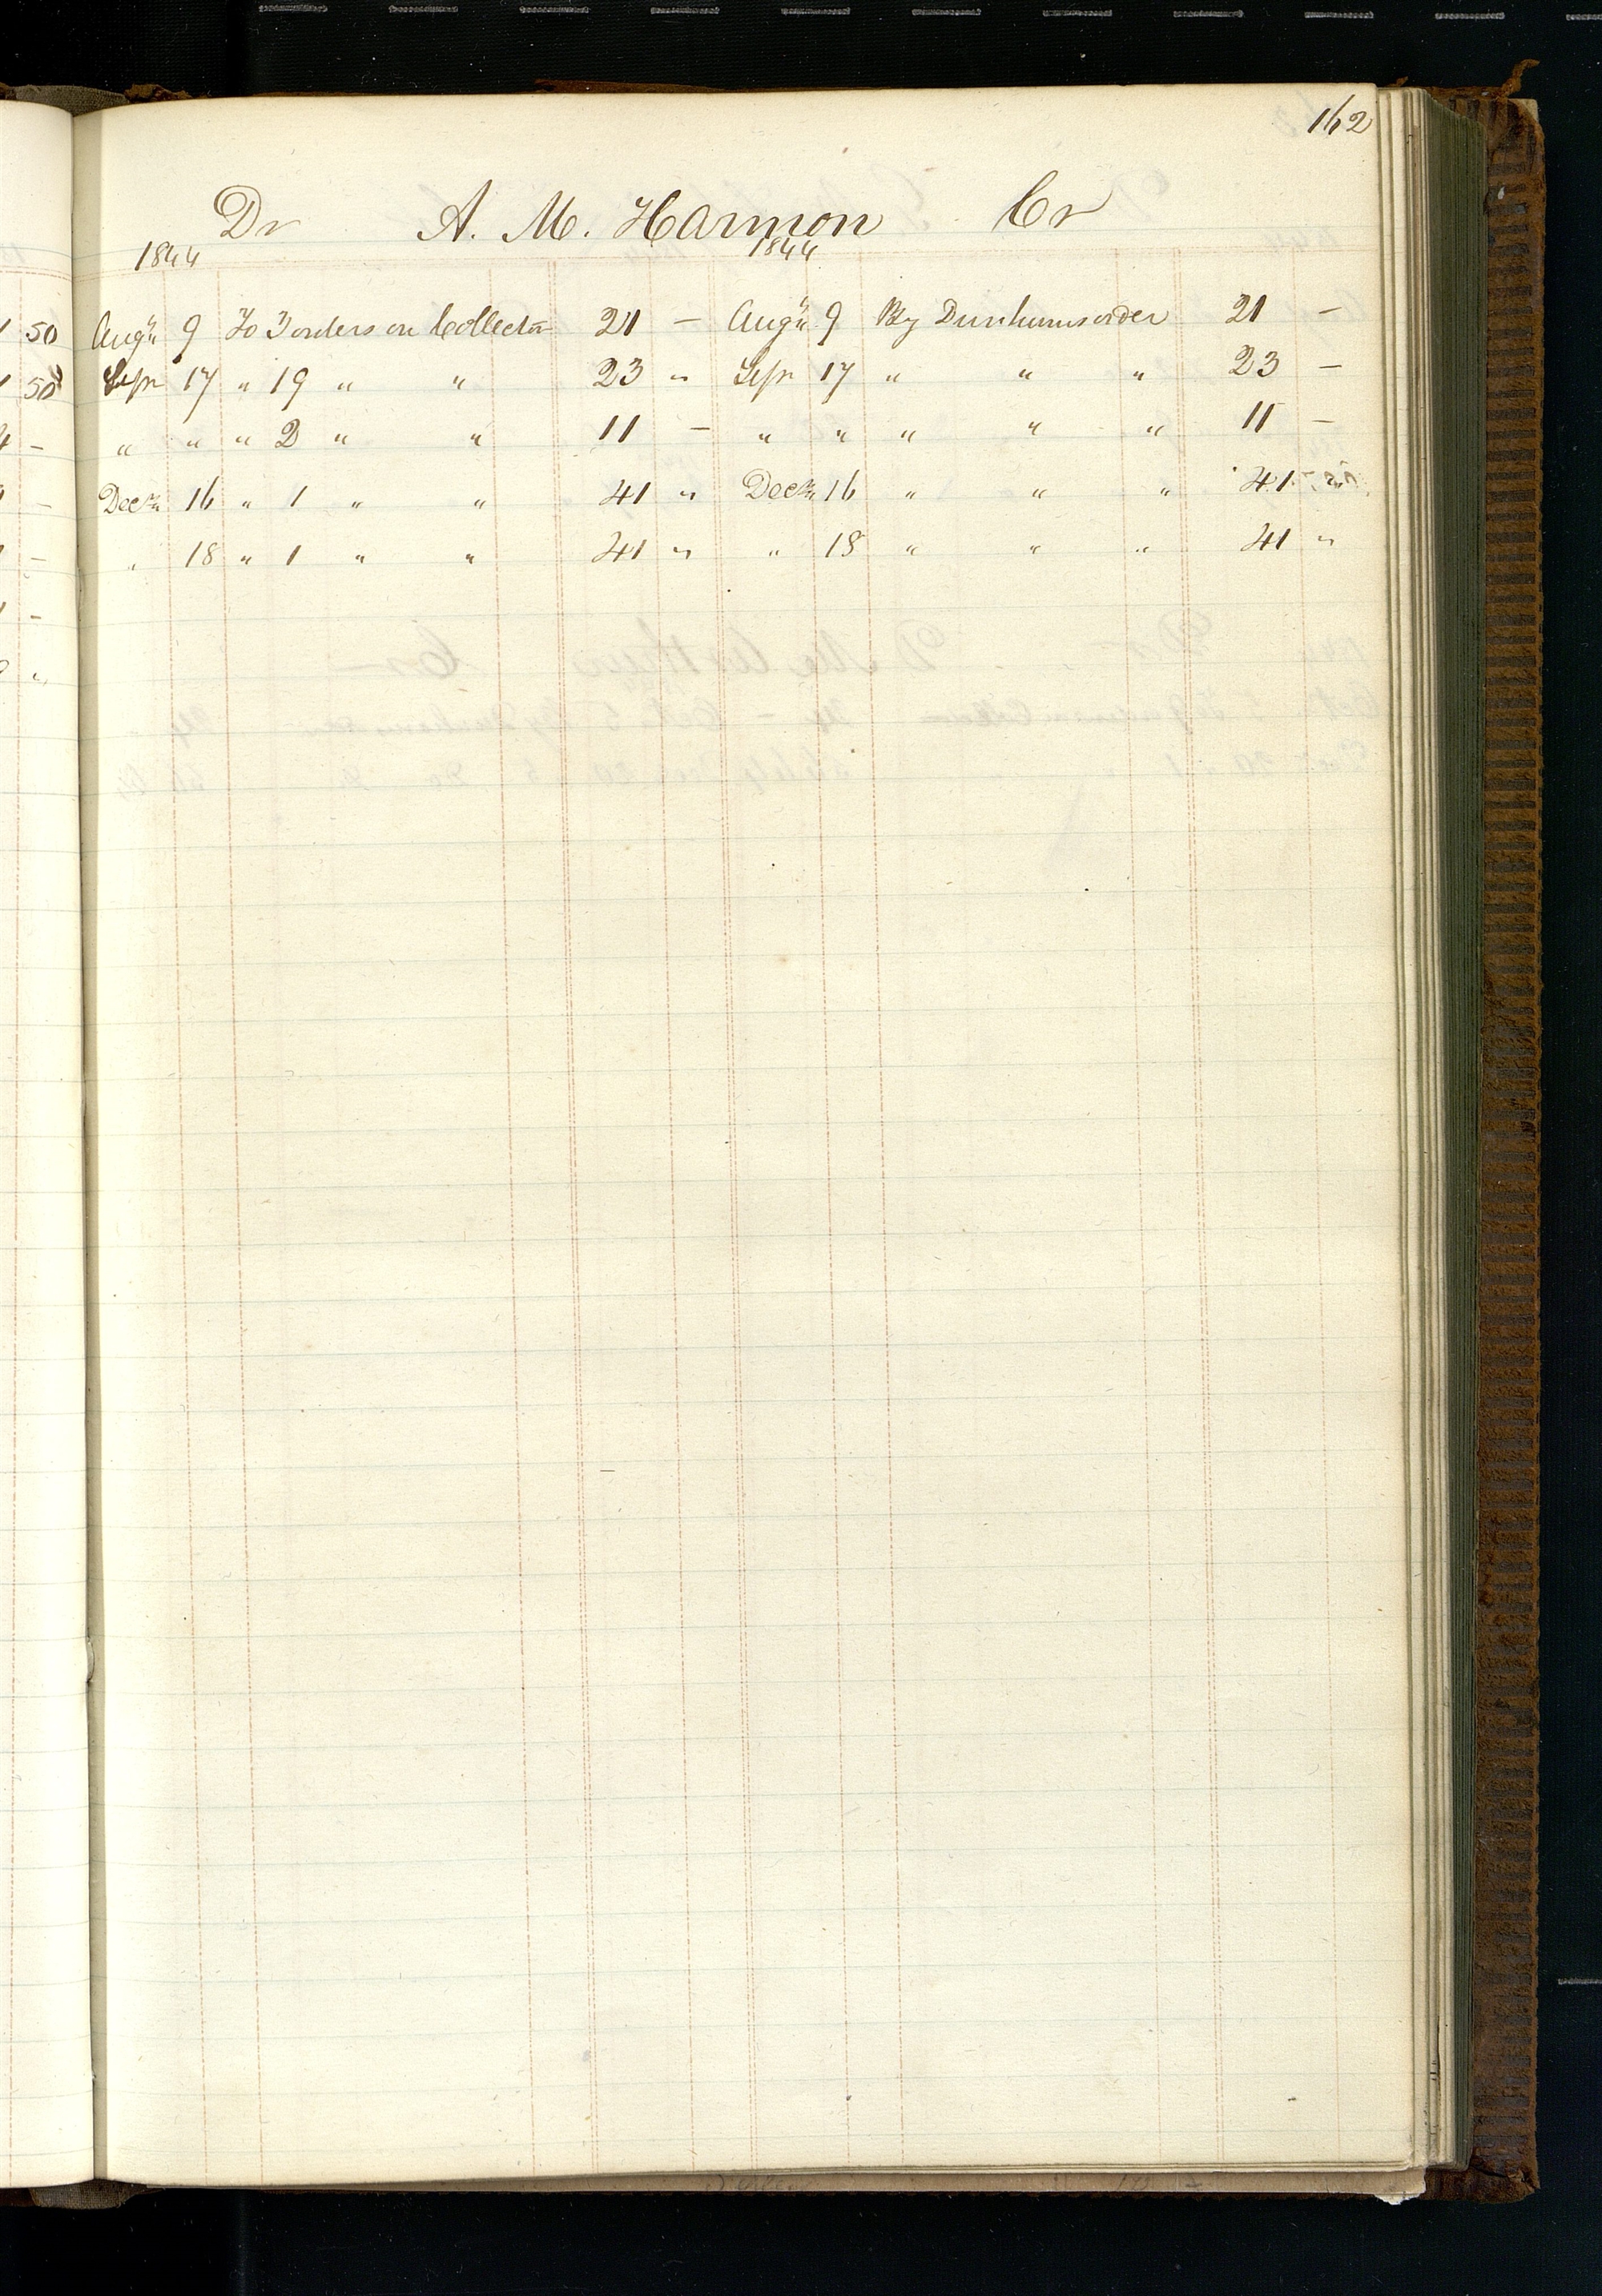 162
Dr A. M. Harmon Cr
1844 1844
Augt 9 To 3 orders on Collector 21 — Augt 9 By Dunhams order 21 —
Sepr 17 " 19 " " 23 " Sepr 17 " " " 23 —
" " " 2 " " 11 — " " " " " 11 —
Decr 16 " 1 " " 41 " Decr 16 " " " 41
" 18 " 1 " " 41 " " 18 " " " 41 "
50
50